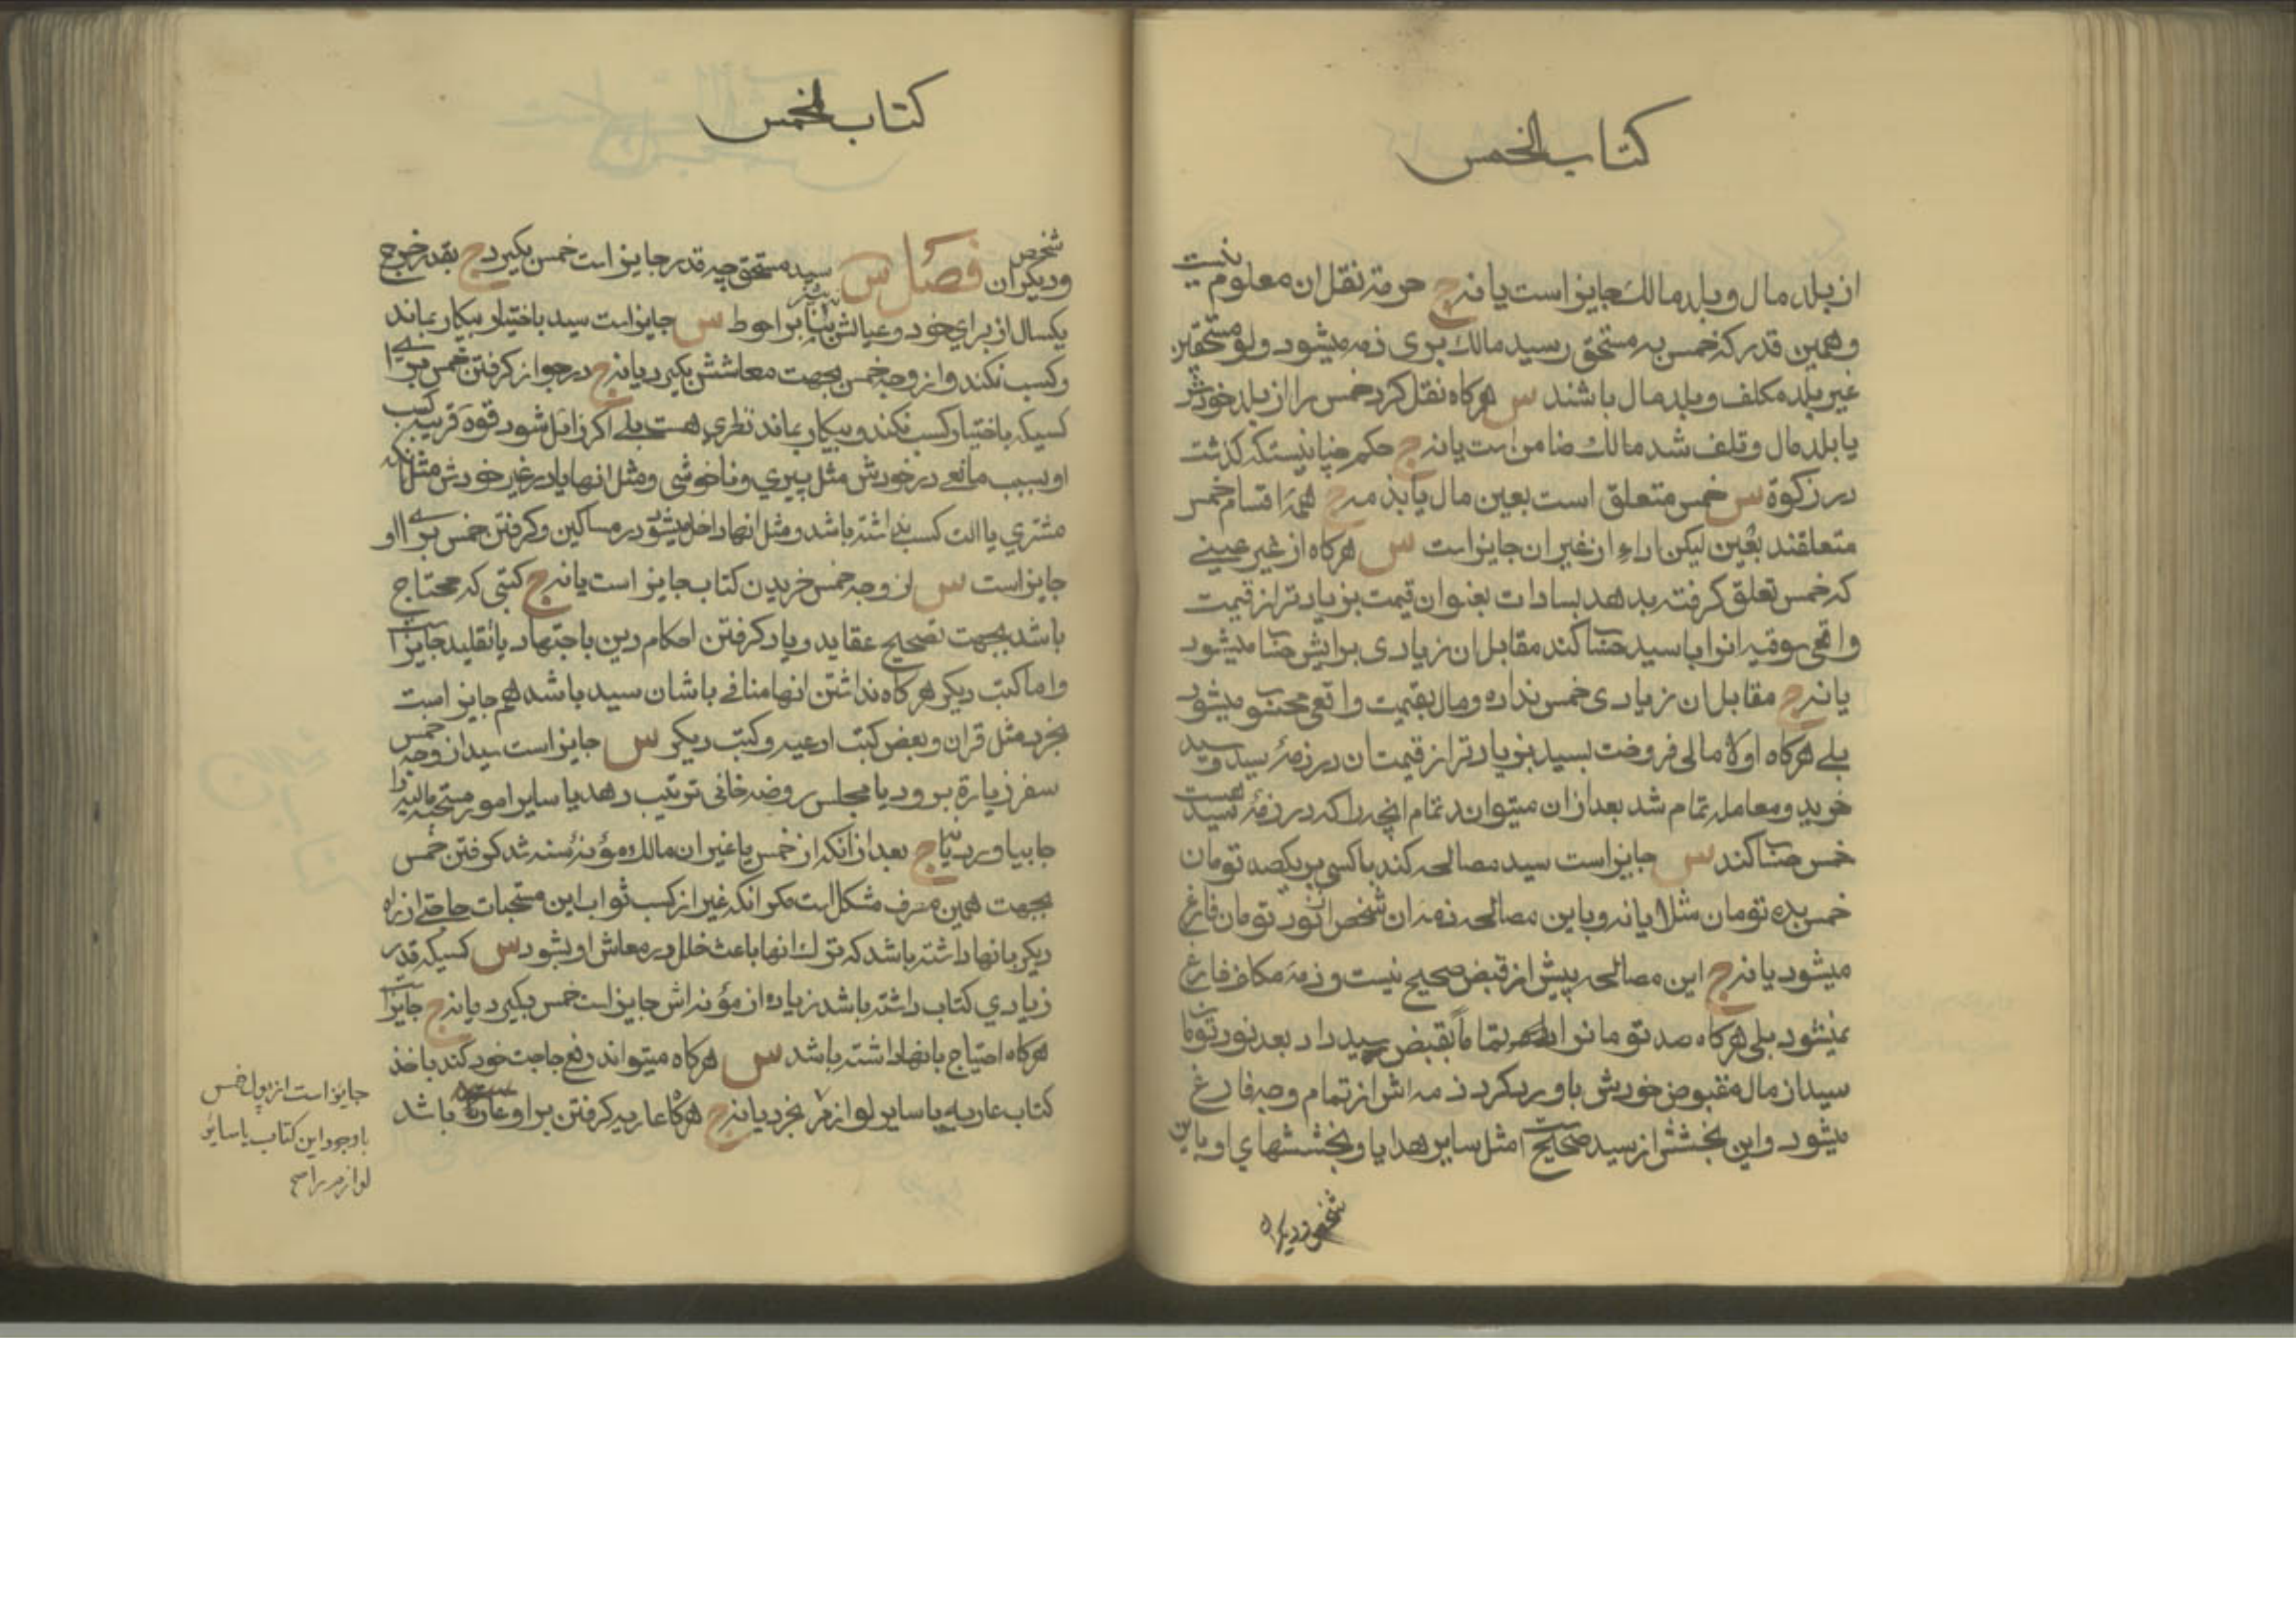 كتاب الخمس
از بلد مال و بلد مالك جايز است يا نه ج حرمة نقل ان معلوم نيست
و همين قدر كه خمس به مستحق رسيد مالك بری ذمه ميشود ولو مستحقين
غير بلد مكلف و بلد مال باشند س هرگاه نقل كرد خمس را از بلد خودش
يا بلد مال و تلف شد مالك ضامن است يا نه ج حكم چنانيستكه گذشت
در زكوة س خمس متعلق است بعين مال يا بذمه ج همهٔ اقسام خمس
متعلقند بعين ليكن اداء از غير ان جايز است س هرگاه از غير عينی
كه خمس تعلق گرفته بدهد بسادات بعنوان قيمت بزيادتر از قيمت
واقعی سوقيه انرا با سيد حساب كند مقابل ان زيادی برايش حساب ميشود
يا نه ج مقابل ان زيادی خمس نداده و مال بقيمت واقعی محسوب ميشود
بلی هرگاه اولا مالی فروخت بسيد بزيادتر از قيمت ان در ذمهٔ سيد و سيد
خريد و معامله تمام شد بعد از ان ميتواند تمام انچه را كه در ذمهٔ سيد هست
خمس حساب كند س جايز است سيد مصالحه كند با كسی بر يكصد تومان
خمس بده تومان مثلا يا نه و باين مصالحه ذمه ان شخص از نود تومان فارغ
ميشود يا نه ج اين مصالحه پيش از قبض صحيح نيست و ذمهٔ مكلف فارغ
نميشود بلی هرگاه صد تومانرا تماماً بقبض سيد داد بعد نود تومان
سيد از مال مقبوض خودش باو رد كرد ذمه اش از تمام وجه فارغ
ميشود و اين بخشش از سيد صحيح است مثل ساير هدايا و بخششهای او باين
شخص و ديگران
كتاب الخمس
شخص و ديگران فصل س سيد مستحق چه قدر جايز است خمس بگيرد ج بقدر خرج
يكسال از برای خود و عيالش نه بيشتر بنابر احوط س جايز است سيد باختيار بيكار بماند
و كسب نكند و از وجه خمس بجهت معاشش بگيرد يا نه ج در جواز گرفتن خمس برای
كسيكه باختيار كسب نكند و بيكار بماند نظری هست بلی اگر زايل شود قوه قريبه كسب
او بسبب مانعی در خودش مثل پيری و ناخوشی و مثل انها يا در غير خودش مثل انكه
مشتری يا الت كسب نداشته باشد و مثل انها داخل ميشود در مساكين و گرفتن خمس برای او
جايز است س از وجه خمس خريدن كتاب جايز است يا نه ج كتبی كه محتاج
باشد بجهت تصحيح عقايد و ياد گرفتن احكام دين باجتهاد يا تقليد جايز است
و اما كتب ديگر هرگاه نداشتن انها منافی با شان سيد باشد هم جايز است
بخرد مثل قران و بعض كتب ادعيه و كتب ديگر س جايز است سيد از وجه خمس
سفر زيارة برود يا مجلس روضه خانی ترتيب دهد يا ساير امور مستحبه ماليه را
جا بياورد يا نه ج بعد از انكه از خمس يا غير ان مالك مؤنهٔ سنه شد گرفتن خمس
بجهت همين مصرف مشكل است مگر انكه غير از كسب ثواب اين مستحبات حاجتی از راه
ديگر بانها داشته باشد كه ترك انها باعث خلل در معاش او بشود س كسيكه قدر
زيادی كتاب داشته باشد زياده از مؤنه اش جايز است خمس بگيرد يا نه ج جايز است
هرگاه احتياج بانها داشته باشد س هرگاه ميتواند رفع حاجت خود كند باخذ
كتاب عاريه يا ساير لوازم بخرد يا نه ج هرگاه عاريه گرفتن بر او باشد
جايز است از پول خمس
با وجود اين كتاب يا ساير
لوازم را صح